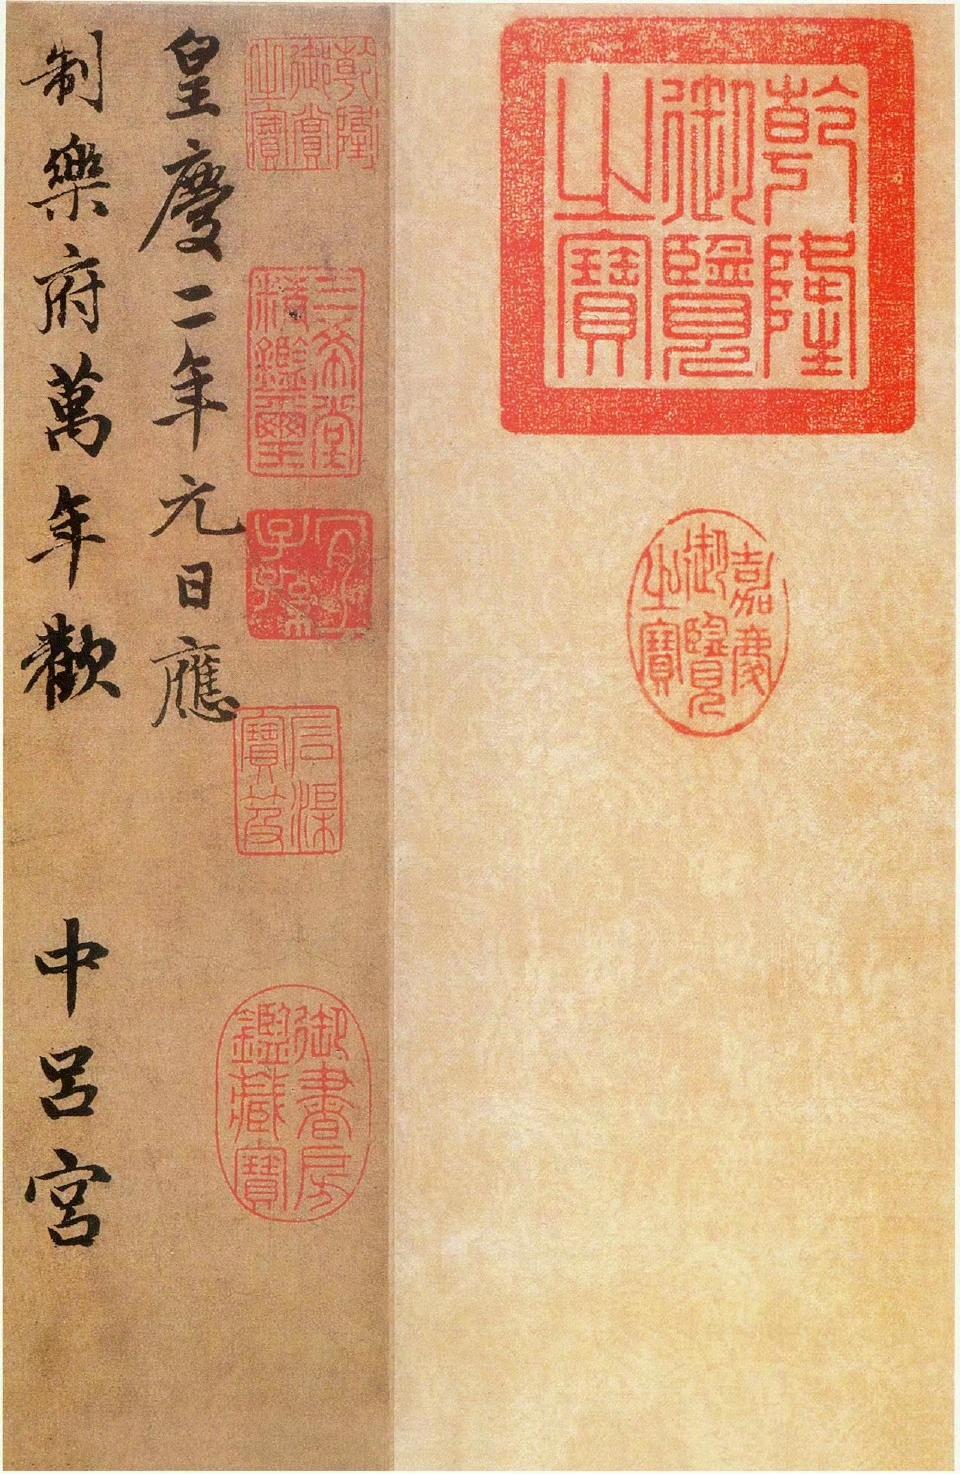 乾隆御覽之寶
嘉慶御覽之寶
乾隆御賞之寶
三希堂精鑑璽
宜子孫
石渠寶笈
御書房鑑藏寶
皇慶二年元日應
制樂府萬年歡 中呂宮